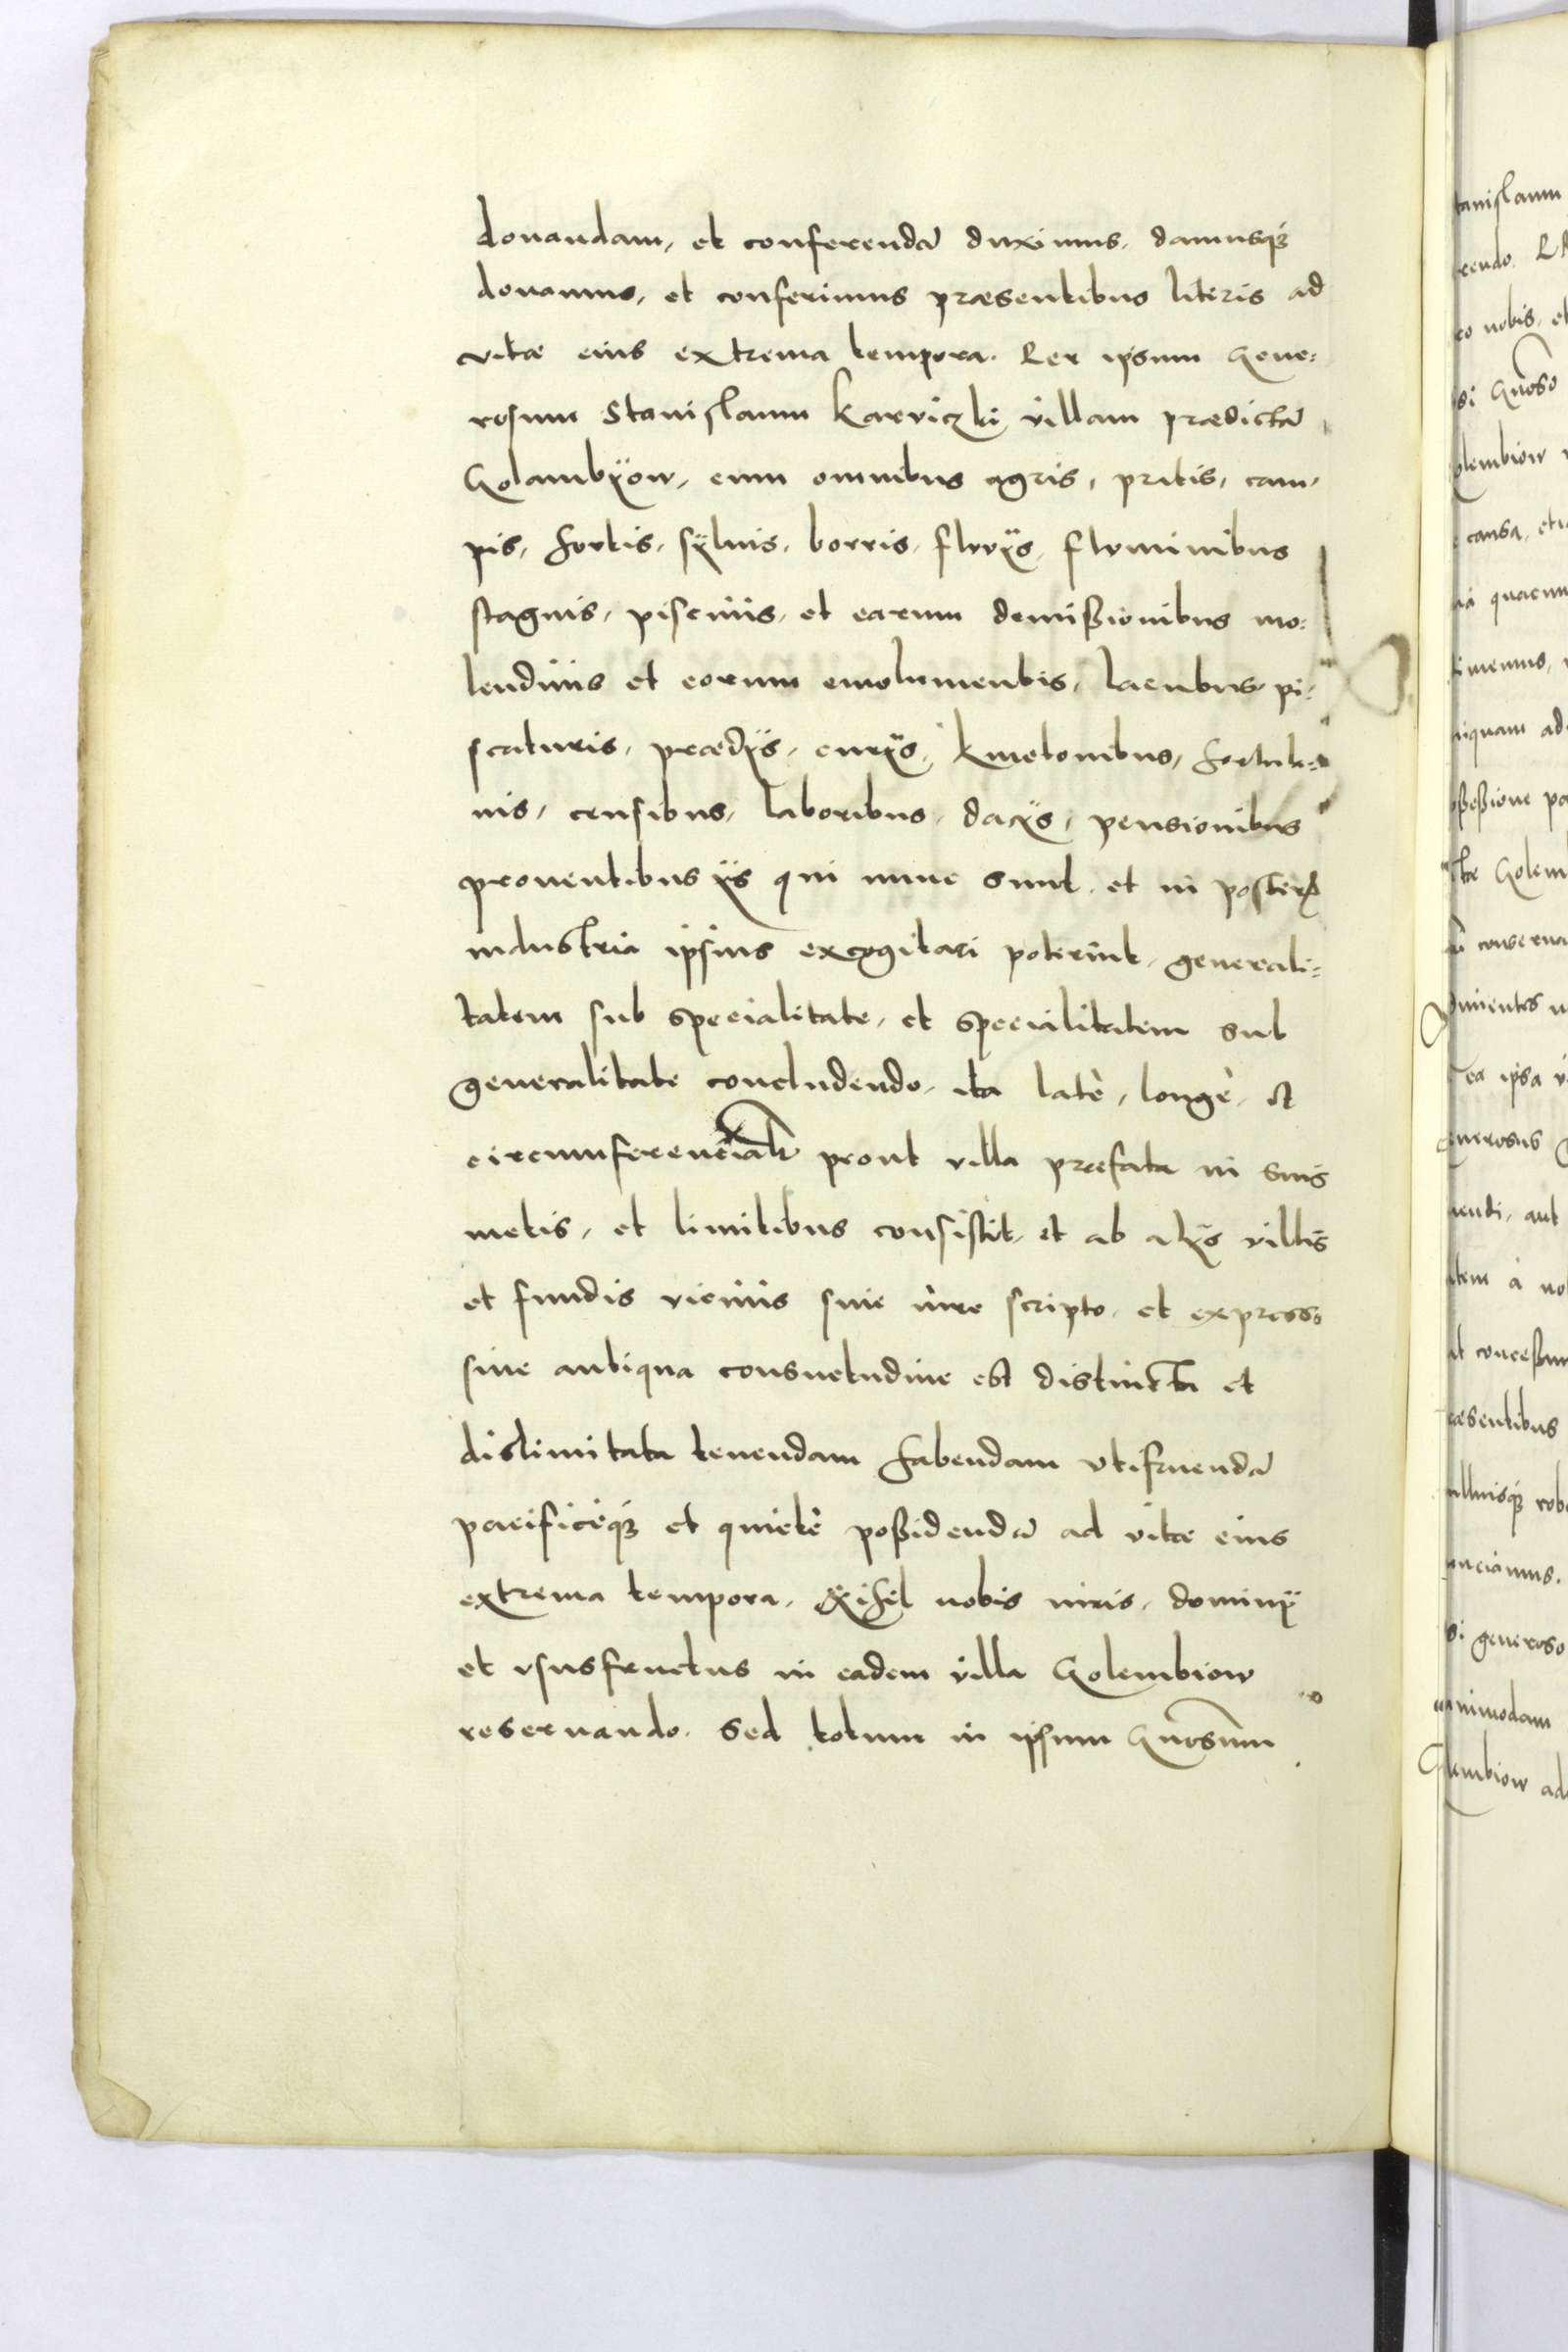 donandam, et conferendā duximus, damusq3
donamus, et conferimus præsentibus literis ad
vitæ eius extrema tempora. Per ipsum Gene:
rosum Stanislaum Karviczki villam prædictā
Golambÿow, cum omnibus agris, pratis, cam,
pis, hortis, sÿluis, borris, fluvÿs, fluminibus
stagnis, piscinis, et earum demißionibus mo:
lendinis et eorum emolumentis, lacubus pi:
scaturis, prædÿs, curÿs, kmetonibus, hortula:
nis, censibus, laboribus, dacÿs, pensionibus
prouentibus ÿs qui nunc sunt, et in posterū
industria ipsius excogitari poterint, generali:
tatem sub specialitate, et specialitatem sub
generalitate concludendo, ita latè, longè, et
circumferencialr prout villa præfata in suis
metis, et limitibus consistit, et ab alÿs villis
et fundis vicinis siue iure scripto, et expresso
siue antiqua consuetudine est distincta et
dislimitata tenendam habendam vtifruendā
pacificèq3 et quietè poßidendā ad vitæ eius
extrema tempora. Nihil nobis iuris, dominÿ
et vsusfructus in eadem villa Golembiow
reseruando. Sed totum in ipsum Gnosum
tanislaum
rendo.
eo nobis, et
si Gnoso
olembiow
causa,
niquam ad
ßeßione
Golem
ea ipsa
enerosus
uendi, aut
tem à no
æsentibus
si generoso
nimodam
Golembiow ad